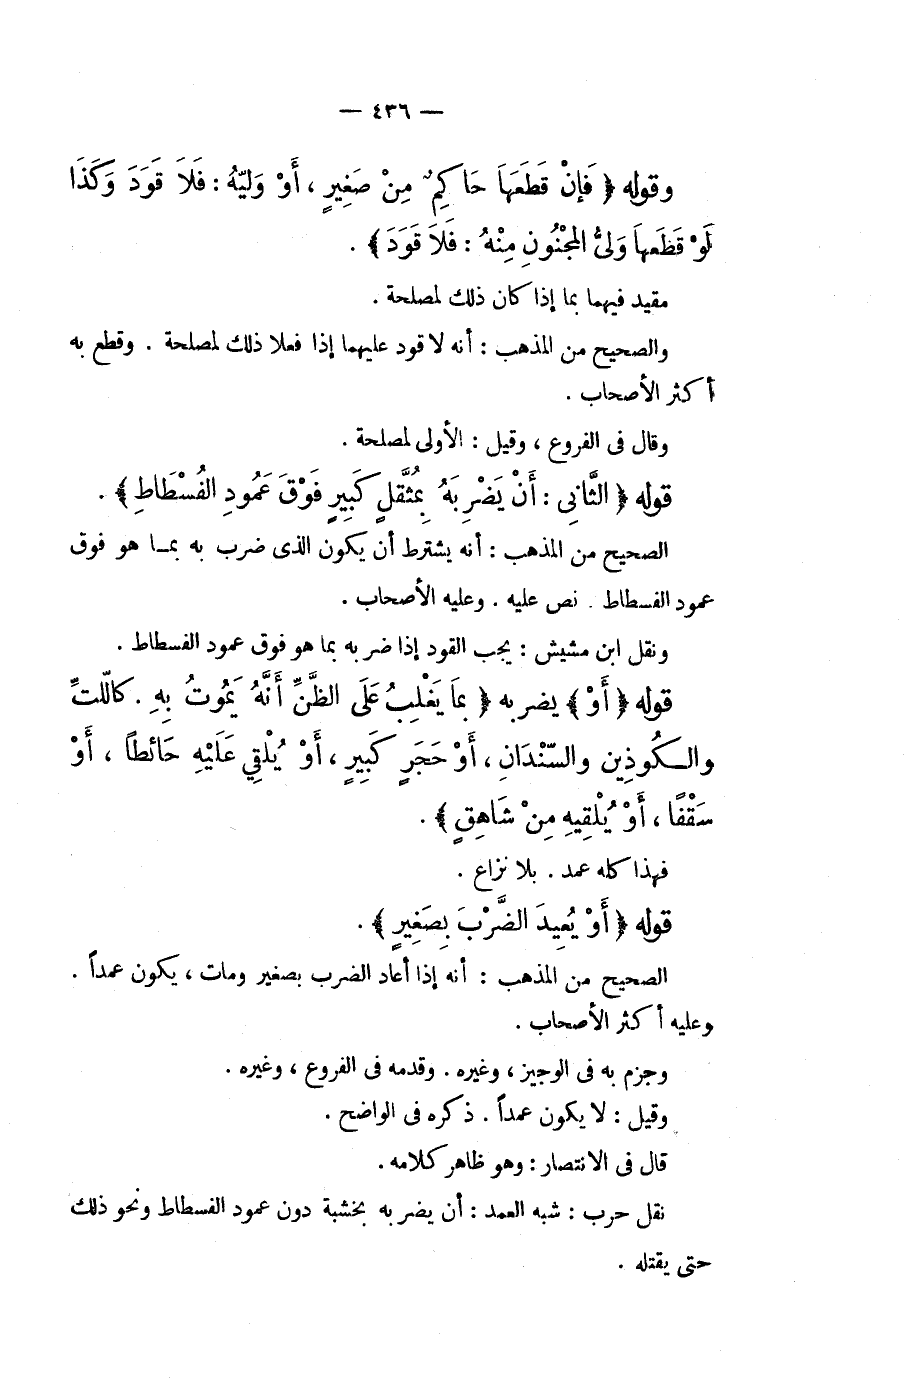 — ٤٣٦ —
وقوله ﴿ فَإِنْ قَطَعَهَا حَاكِمٌ مِنْ صَغِيرٍ ، أَوْ وَلِيّهُ : فَلَا قَوَدَ وَكَذَا
لَوْ قَطَعَهاَ وَلىُّ المَجْنُونِ مِنْهُ : فَلاَ قَوَدَ ﴾ .
مقيد فيهما بما إذا كان ذلك لمصلحة .
والصحيح من المذهب : أنه لا قود عليهما إذا فعلا ذلك لمصلحة . وقطع به
أكثر الأصحاب .
وقال فى الفروع ، وقيل : الأولى لمصلحة .
قوله ﴿ الثَّانِى : أَنْ يَضْرِبَهُ بِمُثَقَّلٍ كَبِيرٍ فَوْقَ عَمُودِ الفُسْطَاطِ ﴾ .
الصحيح من المذهب : أنه يشترط أن يكون الذى ضرب به بمـا هو فوق
عمود الفسطاط . نص عليه . وعليه الأصحاب .
ونقل ابن مشيش : يجب القود إذا ضربه بما هو فوق عمود الفسطاط .
قوله ﴿ أَوْ ﴾ يضربه ﴿ بِمَا يَغْلِبُ عَلَى الظَّنِّ أَنَّهُ يَمُوتُ بِهِ . كاللّتِّ
والـكُوذِينِ والسِّنْدَانِ ، أَوْ حَجَرٍ كَبِيرٍ ، أَوْ يُلْقِي عَلَيْهِ حَائطاً ، أَوْ
سَقْفًا ، أَوْ يُلْقِيهِ مِنْ شَاهِقٍ ﴾ .
فهذا كله عمد . بلا نزاع .
قوله ﴿ أَوْ يُعِيدَ الضَّرْبَ بِصَغِيرٍ ﴾ .
الصحيح من المذهب : أنه إذا أعاد الضرب بصغير ومات ، يكون عمداً .
وعليه أكثر الأصحاب .
وجزم به فى الوجيز ، وغيره . وقدمه فى الفروع ، وغيره .
وقيل : لا يكون عمداً . ذكره فى الواضح .
قال فى الانتصار : وهو ظاهر كلامه .
نقل حرب : شبه العمد : أن يضربه بخشبة دون عمود الفسطاط ونحو ذلك
حتى يقتله .